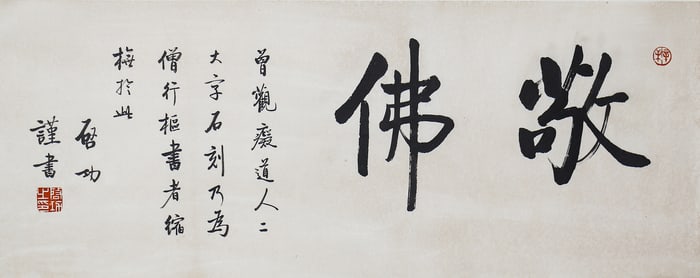 敬佛
曾觀癡道人二
大字石刻乃為
僧行樞書者縮
橅於此
啓功
謹書